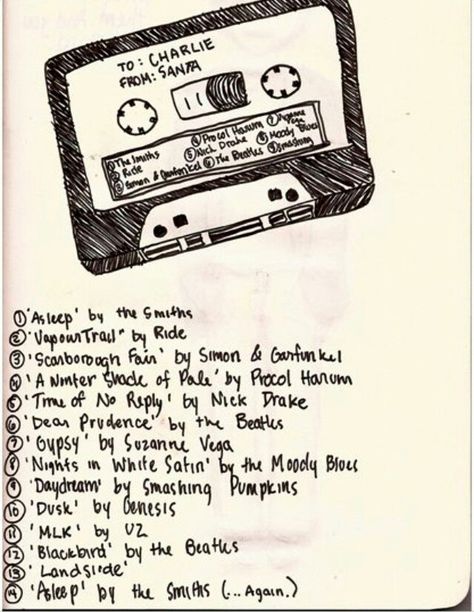 TO: CHARLIE
FROM: SANTA
① The Smiths
② Ride
③ Simon & Garfunkel
④ Procol Harum
⑤ Nick Drake
⑥ The Beatles
⑦ Suzanne Vega
⑧ Moody Blues
⑨ Smashing
① 'Asleep' by the Smiths
② 'Vapour Trail" by Ride
③ 'Scarborough Fair' by Simon & Garfunkel
④ 'A Winter Shade of Pale' by Procol Harum
⑤ 'Time of No Reply' by Nick Drake
⑥ 'Dear Prudence' by the Beatles
⑦ 'Gypsy' by Suzanne Vega
⑧ 'Nights in White Satin' by the Moody Blues
⑨ 'Daydream' by Smashing Pumpkins
⑩ 'Dusk' by Genesis
⑪ 'MLK' by U2
⑫ 'Blackbird' by the Beatles
⑬ 'Landslide'
⑭ 'Asleep' by the Smiths (...Again.)